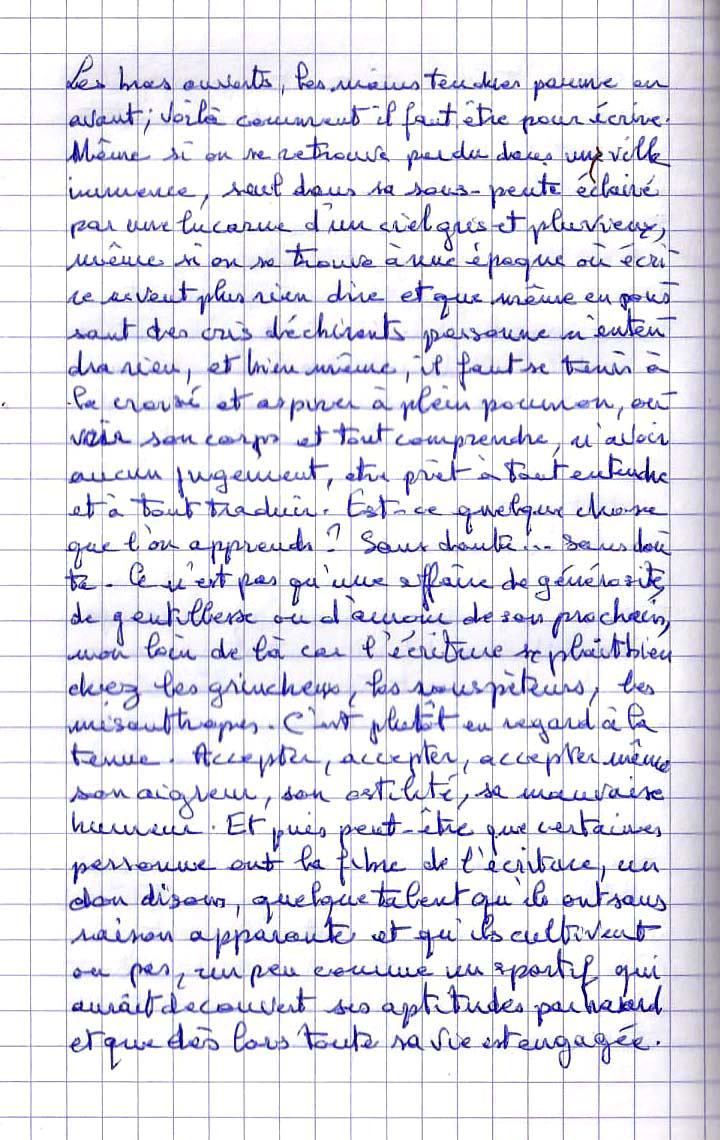 Les bras ouverts, les mains tendues paume en
avant; voilà comment il faut être pour écrire.
Même si on se retrouve perdu dans une ville
immence, seul dans sa sous-pente éclairé
par une lucarne d'un ciel gris et pluvieux,
même si on se trouve à une époque où écri
re ne veut plus rien dire et que même en pous
sant des cris déchirants personne n'enten
dra rien, et bien même, il faut se tenir à
la croisé et aspirer à plein poumon, ou
vrir son corps et tout comprendre, n'avoir
aucun jugement, être prêt à tout entendre
et à tout traduir. Est-ce quelque chose
que l'on apprends ? Sans doute... sans dou
te. Ce n'est pas qu'une affaire de générosité,
de gentillesse ou d'amour de son prochain,
non loin de là car l'écriture se plaît bien
chez les grincheux, les rouspèteurs, les
misanthropes. C'est plutôt en regard à la
tenue. Accepter, accepter, accepter même
son aigreur, son ostilité, sa mauvaise
humeur. Et puis peut-être que certaines
personne ont la fibre de l'écriture, un
don disons, quelque talent qu'ils ont sans
raison apparente et qu'ils cultivent
ou pas, un peu comme un sportif qui
aurait découvert ses aptitudes par hasard
et que dès lors toute sa vie est engagée.